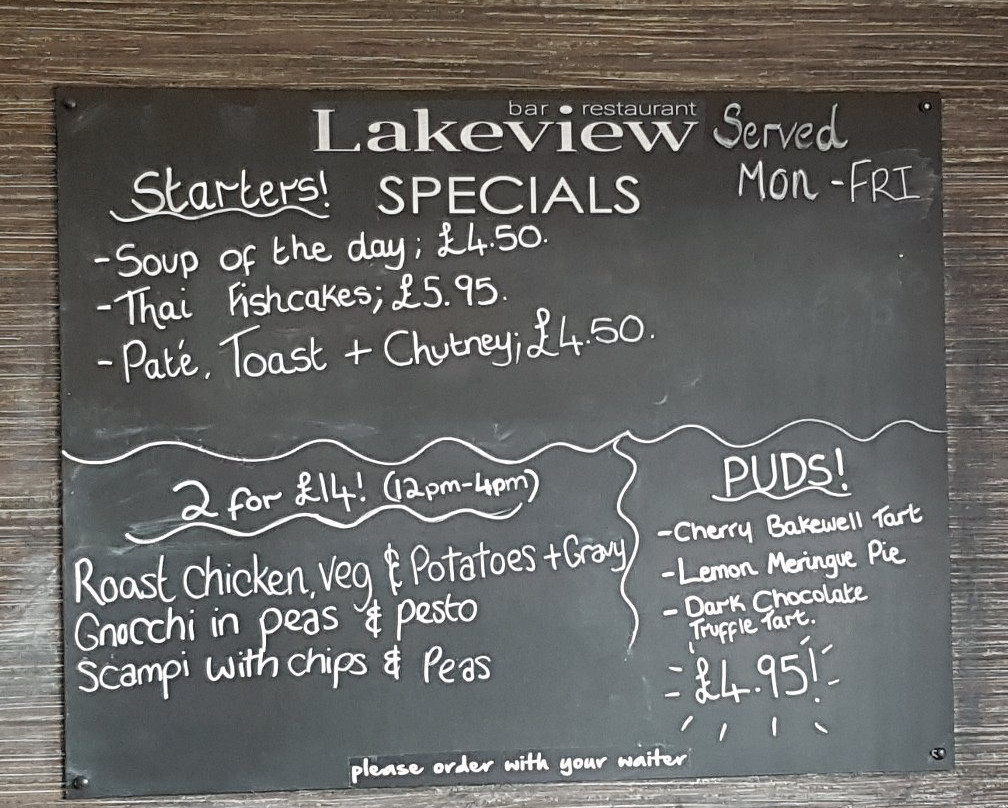 bar • restaurant
Lakeview
Served
Mon - FRI
SPECIALS
Starters!
- Soup of the day; £4.50.
- Thai Fishcakes; £5.95.
- Paté, Toast + Chutney; £4.50.
2 for £14! (12pm-4pm)
Roast chicken, veg & Potatoes + Gravy
Gnocchi in peas & pesto
Scampi with chips & Peas
PUDS!
- Cherry Bakewell Tart
- Lemon Meringue Pie
- Dark Chocolate
Truffle Tart.
£4.95!
please order with your waiter